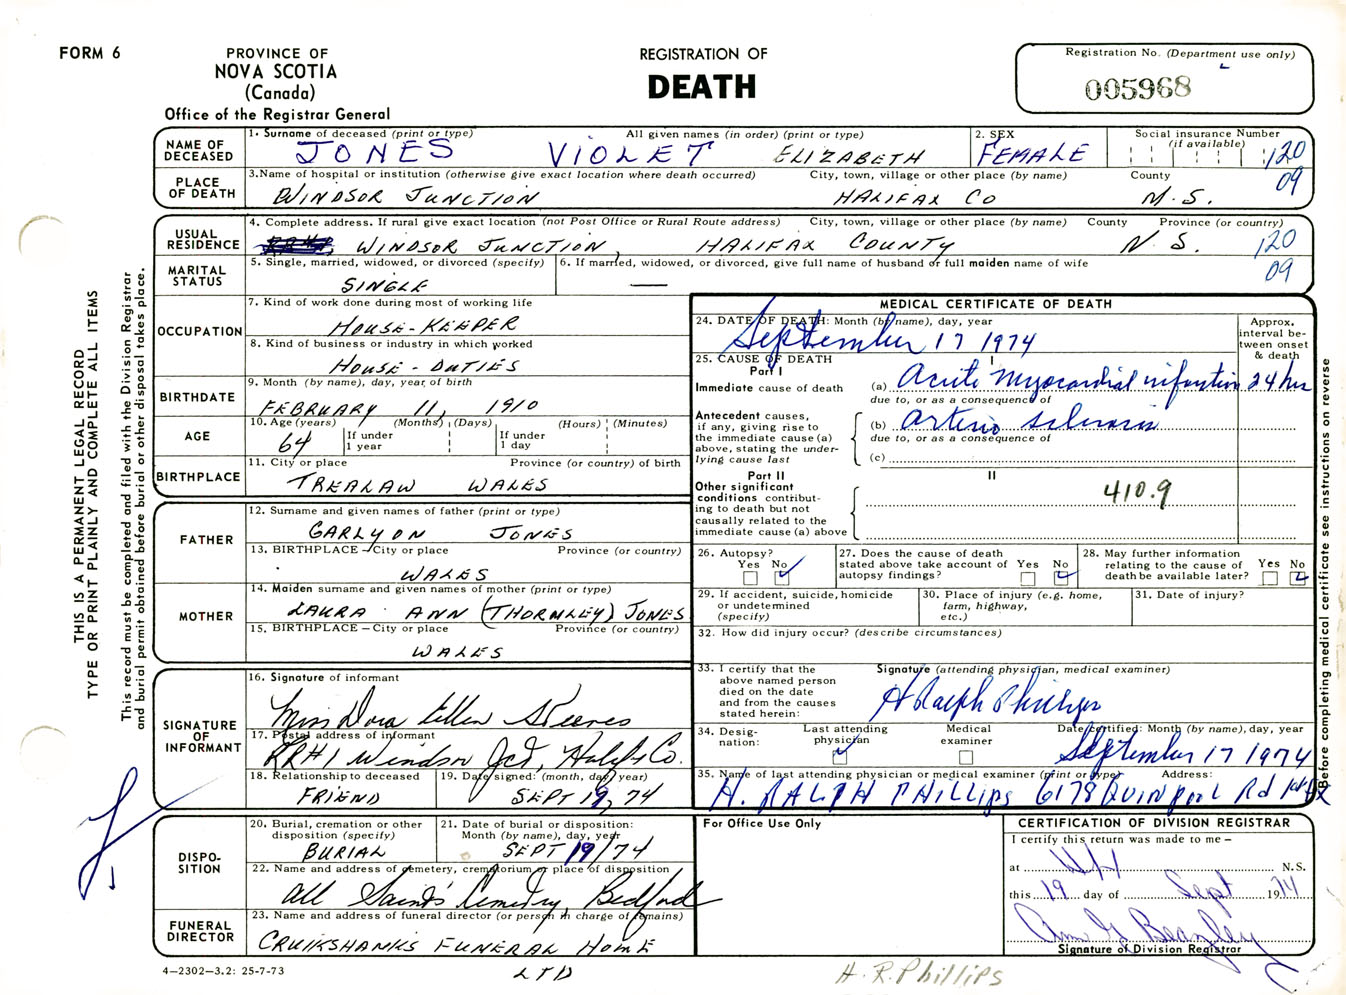 FORM 6
PROVINCE OF
NOVA SCOTIA
(Canada)
Office of the Registrar General
REGISTRATION OF
DEATH
Registration No. (Department use only)
005968
THIS IS A PERMANENT LEGAL RECORD
TYPE OR PRINT PLAINLY AND COMPLETE ALL ITEMS
This record must be completed and filed with the Division Registrar
and burial permit obtained before burial or other disposal takes place.
NAME OF DECEASED
1. Surname of deceased (print or type) All given names (in order) (print or type)
JONES VIOLET ELIZABETH
2. SEX
FEMALE
Social insurance Number
(if available)
120
09
PLACE OF DEATH
3. Name of hospital or institution (otherwise give exact location where death occurred) City, town, village or other place (by name) County
WINDSOR JUNCTION HALIFAX CO N.S.
USUAL RESIDENCE
4. Complete address. If rural give exact location (not Post Office or Rural Route address) City, town, village or other place (by name) County Province (or country)
WINDSOR JUNCTION, HALIFAX COUNTY N.S.
120
09
MARITAL STATUS
5. Single, married, widowed, or divorced (specify)
SINGLE
6. If married, widowed, or divorced, give full name of husband or full maiden name of wife
—
OCCUPATION
7. Kind of work done during most of working life
HOUSE-KEEPER
8. Kind of business or industry in which worked
HOUSE-DUTIES
BIRTHDATE
9. Month (by name), day, year of birth
FEBRUARY 11, 1910
AGE
10. Age (years) (Months) (Days) (Hours) (Minutes)
64 If under 1 year If under 1 day
BIRTHPLACE
11. City or place Province (or country) of birth
TREALAW WALES
FATHER
12. Surname and given names of father (print or type)
GARLYON JONES
13. BIRTHPLACE – City or place Province (or country)
WALES
MOTHER
14. Maiden surname and given names of mother (print or type)
LAURA ANN (THORMLEY) JONES
15. BIRTHPLACE – City or place Province (or country)
WALES
SIGNATURE OF INFORMANT
16. Signature of informant
Miss Dora Ellen Steeves
17. Postal address of informant
RR#1 Windsor Jct, Halifx Co.
18. Relationship to deceased
FRIEND
19. Date signed: (month, day, year)
SEPT 19, 74
DISPO-SITION
20. Burial, cremation or other disposition (specify)
BURIAL
21. Date of burial or disposition:
Month (by name), day, year
SEPT 19/74
22. Name and address of cemetery, crematorium or place of disposition
All Saints Cemetry, Bedford
FUNERAL DIRECTOR
23. Name and address of funeral director (or person in charge of remains)
CRUIKSHANKS FUNERAL HOME
LTD
4–2302–3.2: 25-7-73
MEDICAL CERTIFICATE OF DEATH
24. DATE OF DEATH: Month (by name), day, year
September 17 1974
Approx. interval be-tween onset & death
25. CAUSE OF DEATH
Part I
I
Immediate cause of death (a) Acute Myocardial infarction 24 hrs
due to, or as a consequence of
Antecedent causes, if any, giving rise to the immediate cause (a) above, stating the under-lying cause last
(b) Arterio sclerosis
due to, or as a consequence of
(c)
Part II
II
Other significant conditions contribut-ing to death but not causally related to the immediate cause (a) above
410.9
26. Autopsy?
Yes No ✓
27. Does the cause of death stated above take account of autopsy findings?
Yes No ✓
28. May further information relating to the cause of death be available later?
Yes No ✓
29. If accident, suicide, homicide or undetermined (specify)
30. Place of injury (e.g. home, farm, highway, etc.)
31. Date of injury?
32. How did injury occur? (describe circumstances)
33. I certify that the above named person died on the date and from the causes stated herein:
Signature (attending physician, medical examiner)
H Ralph Phillips
34. Desig-nation:
Last attending physician ✓
Medical examiner
Date certified: Month (by name), day, year
September 17 1974
35. Name of last attending physician or medical examiner (print or type) Address:
H. RALPH PHILLIPS 6178 QUINPOOL Rd Hfx
Before completing medical certificate see instructions on reverse
For Office Use Only
CERTIFICATION OF DIVISION REGISTRAR
I certify this return was made to me –
at Hfx N.S.
this 19 day of Sept 1974
Signature of Division Registrar
H.R. Phillips